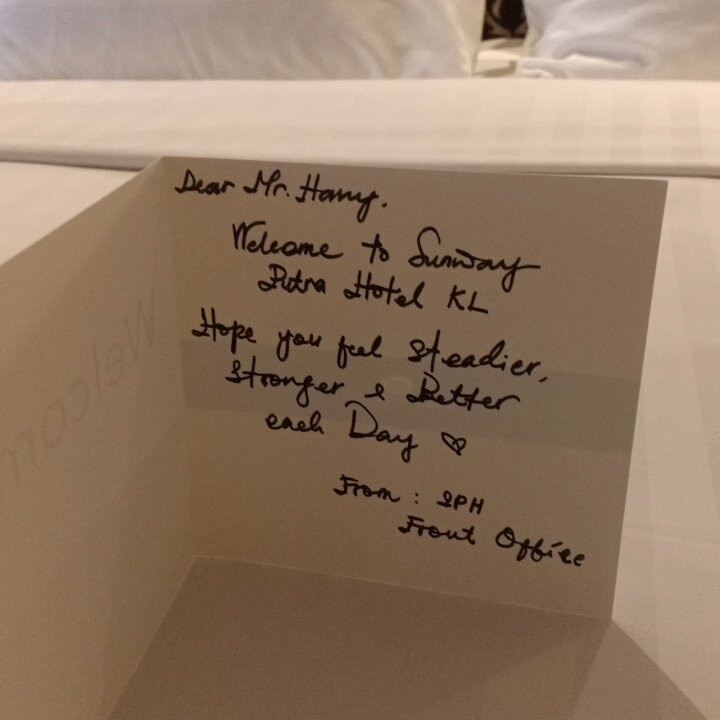 Dear Mr. Harry.
Welcome to Sunway
Putra Hotel KL
Hope you feel steadier,
stronger & Better
each Day ♡
From : SPH
Front Office
Welcom